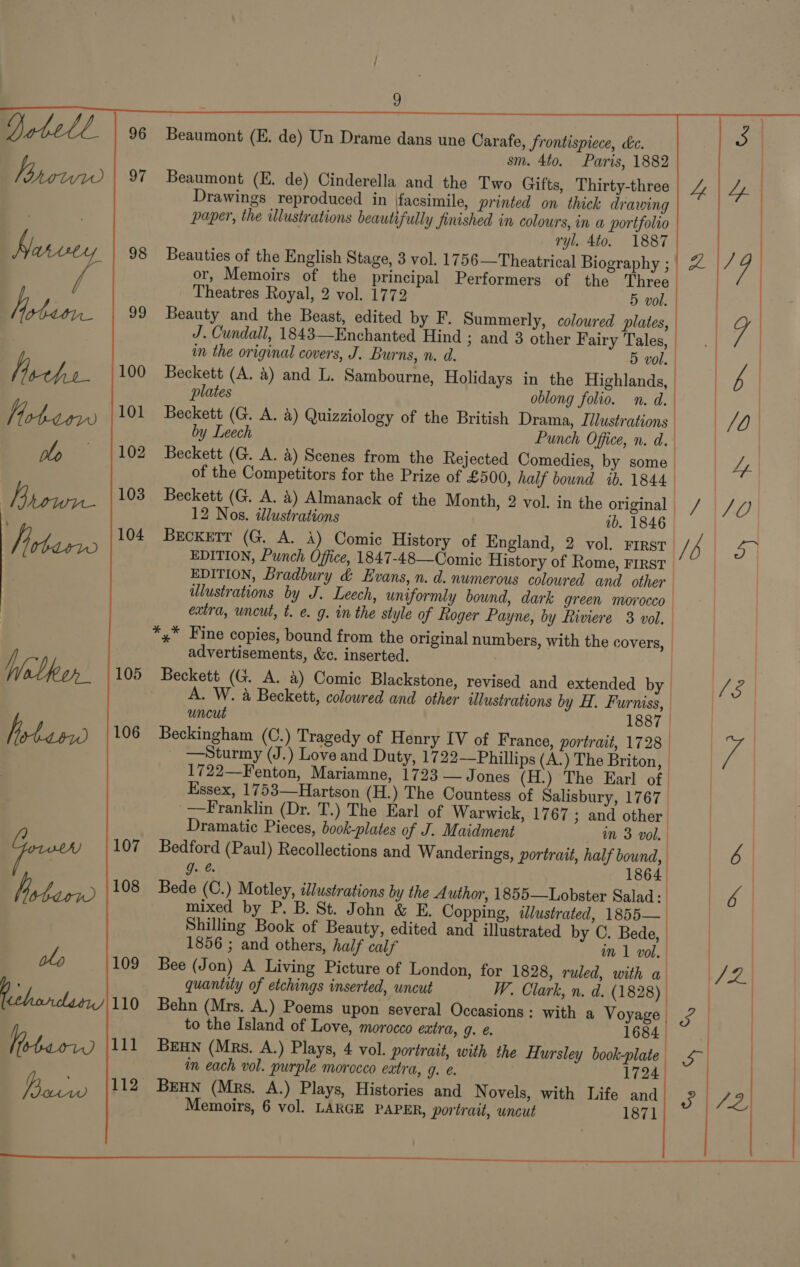 9
Dobell 96 Beaumont (E. de) Un Drame dans une Carafe, frontispiece, &c. 3
sm. 4to. Paris, 1882
Brown 97 Beaumont (E. de) Cinderella and the Two Gifts, Thirty-three 4 4
Drawings reproduced in facsimile, printed on thick drawing
paper, the illustrations beautifully finished in colours, in a portfolio
ryl. 4to. 1887
Harvey 98 Beauties of the English Stage, 3 vol. 1756—Theatrical Biography; 2 19
or, Memoirs of the principal Performers of the Three
Theatres Royal, 2 vol. 1772 5 vol.
Hobson 99 Beauty and the Beast, edited by F. Summerly, coloured plates, 9
J. Cundall, 1843—Enchanted Hind; and 3 other Fairy Tales,
in the original covers, J. Burns, n. d. 5 vol.
Roche 100 Beckett (A. à) and L. Sambourne, Holidays in the Highlands, 6
plates oblong folio. n. d.
Hobson 101 Beckett (G. A. à) Quizziology of the British Drama, Illustrations 10
by Leech Punch Office, n. d.
do 102 Beckett (G. A. à) Scenes from the Rejected Comedies, by some 4
of the Competitors for the Prize of £500, half bound ib. 1844
Brown 103 Beckett (G. A. à) Almanack of the Month, 2 vol. in the original 1 10
12 Nos. illustrations ib. 1846
Hobson 104 BECKETT (G. A. À) Comic History of England, 2 vol. FIRST 16 5
EDITION, Punch Office, 1847-48—Comic History of Rome, FIRST
EDITION, Bradbury & Evans, n. d. numerous coloured and other
illustrations by J. Leech, uniformly bound, dark green morocco
extra, uncut, t. e. g. in the style of Roger Payne, by Riviere 3 vol.
*** Fine copies, bound from the original numbers, with the covers,
advertisements, &c. inserted.
Walker 105 Beckett (G. A. à) Comic Blackstone, revised and extended by 13
A. W. à Beckett, coloured and other illustrations by H. Furniss,
uncut 1887
Hobson 106 Beckingham (C.) Tragedy of Henry IV of France, portrait, 1728 7
—Sturmy (J.) Love and Duty, 1722—Phillips (A.) The Briton,
1722—Fenton, Mariamne, 1723—Jones (H.) The Earl of
Essex, 1753—Hartson (H.) The Countess of Salisbury, 1767
—Franklin (Dr. T.) The Earl of Warwick, 1767; and other
Dramatic Pieces, book-plates of J. Maidment in 3 vol.
107 Bedford (Paul) Recollections and Wanderings, portrait, half bound, 6
g. e. 1864
Hobson 108 Bede (C.) Motley, illustrations by the Author, 1855—Lobster Salad: 6
mixed by P. B. St. John & E. Copping, illustrated, 1855—
Shilling Book of Beauty, edited and illustrated by C. Bede,
1856; and others, half calf in 1 vol.
do 109 Bee (Jon) A Living Picture of London, for 1828, ruled, with a 12
quantity of etchings inserted, uncut W. Clark, n. d. (1828)
Richardson 110 Behn (Mrs. A.) Poems upon several Occasions: with a Voyage 3
to the Island of Love, morocco extra, g. e. 1684
Hobson 111 BEHN (MRS. A.) Plays, 4 vol. portrait, with the Hursley book-plate 5
in each vol. purple morocco extra, g. e. 1724
Bain 112 BEHN (Mrs. A.) Plays, Histories and Novels, with Life and 3 12
Memoirs, 6 vol. LARGE PAPER, portrait, uncut 1871